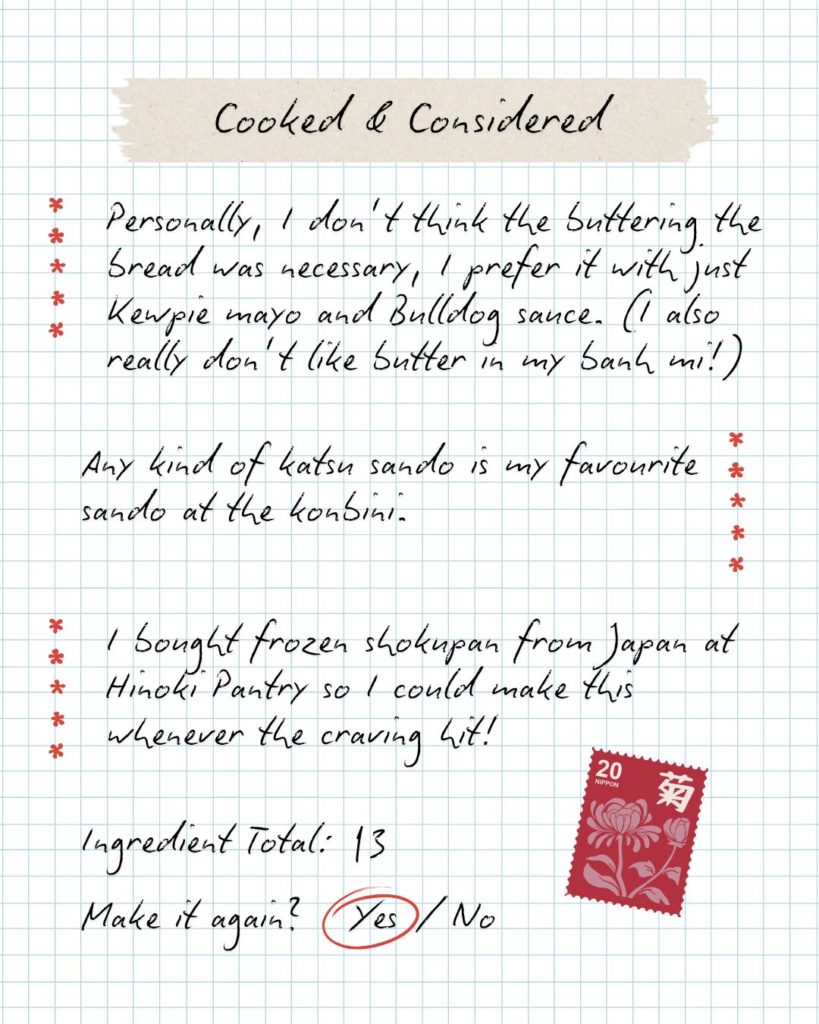 Cooked & Considered
Personally, I don't think the buttering the
bread was necessary, I prefer it with just
Kewpie mayo and Bulldog sauce. (I also
really don't like butter in my banh mi!)
Any kind of katsu sando is my favourite
sando at the konbini.
I bought frozen shokupan from Japan at
Hinoki Pantry so I could make this
whenever the craving hit!
20
NIPPON
菊
Ingredient Total: 13
Make it again? Yes / No